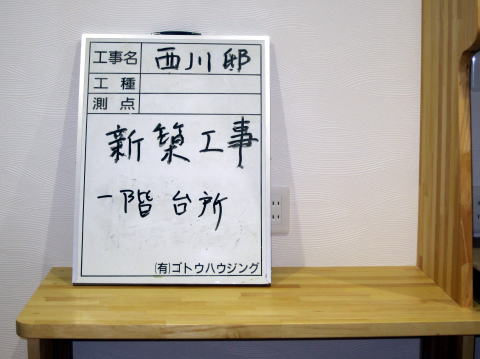 工事名 西川邸
工種
測点
新築工事
一階 台所
(有)ゴトウハウジング